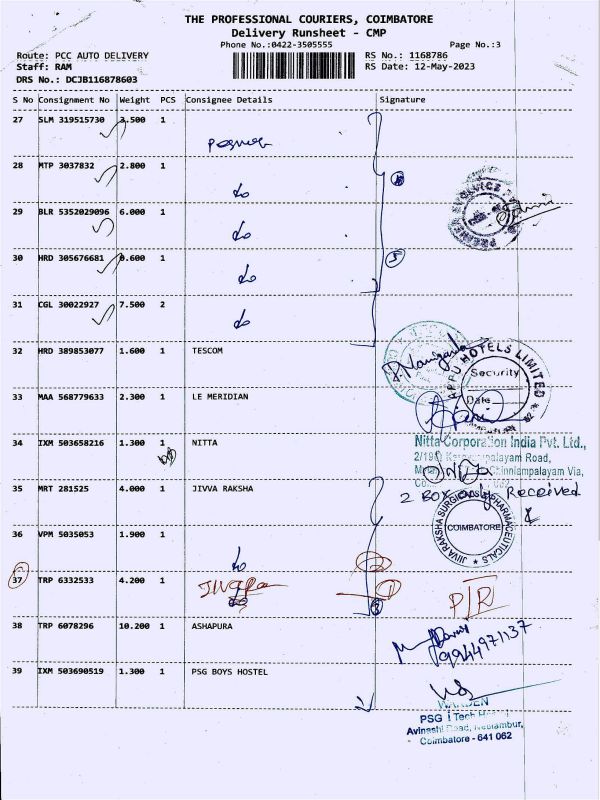 THE PROFESSIONAL COURIERS, COIMBATORE
Delivery Runsheet - CMP
Phone No.:0422-3505555 Page No.:3
Route: PCC AUTO DELIVERY RS No.: 1168786
Staff: RAM RS Date: 12-May-2023
DRS No.: DCJB116878603
S No Consignment No Weight PCS Consignee Details Signature
27 SLM 319515730 3.500 1
28 MTP 3037832 2.800 1 do
29 BLR 5352029096 6.000 1 do
30 HRD 305676681 0.600 1 do
5
31 CGL 30022927 7.500 2 do
32 HRD 389853077 1.600 1 TESCOM
APPU HOTELS LIMITED
Security
Date
33 MAA 568779633 2.300 1 LE MERIDIAN
34 IXM 503658216 1.300 1 NITTA
Nitta Corporation India Pvt. Ltd.,
palayam Road,
Chinniampalayam Via,
35 MRT 281525 4.000 1 JIVVA RAKSHA
2 Box only Received
JIVVA RAKSHA SURGICALS PHARMACEUTICALS
COIMBATORE
36 VPM 5035053 1.900 1 do
37 TRP 6332533 4.200 1
P/R
38 TRP 6078296 10.200 1 ASHAPURA
9944971137
39 IXM 503690519 1.300 1 PSG BOYS HOSTEL
WARDEN
PSG I Tech
Avinashi Road, Neelambur,
Coimbatore - 641 062